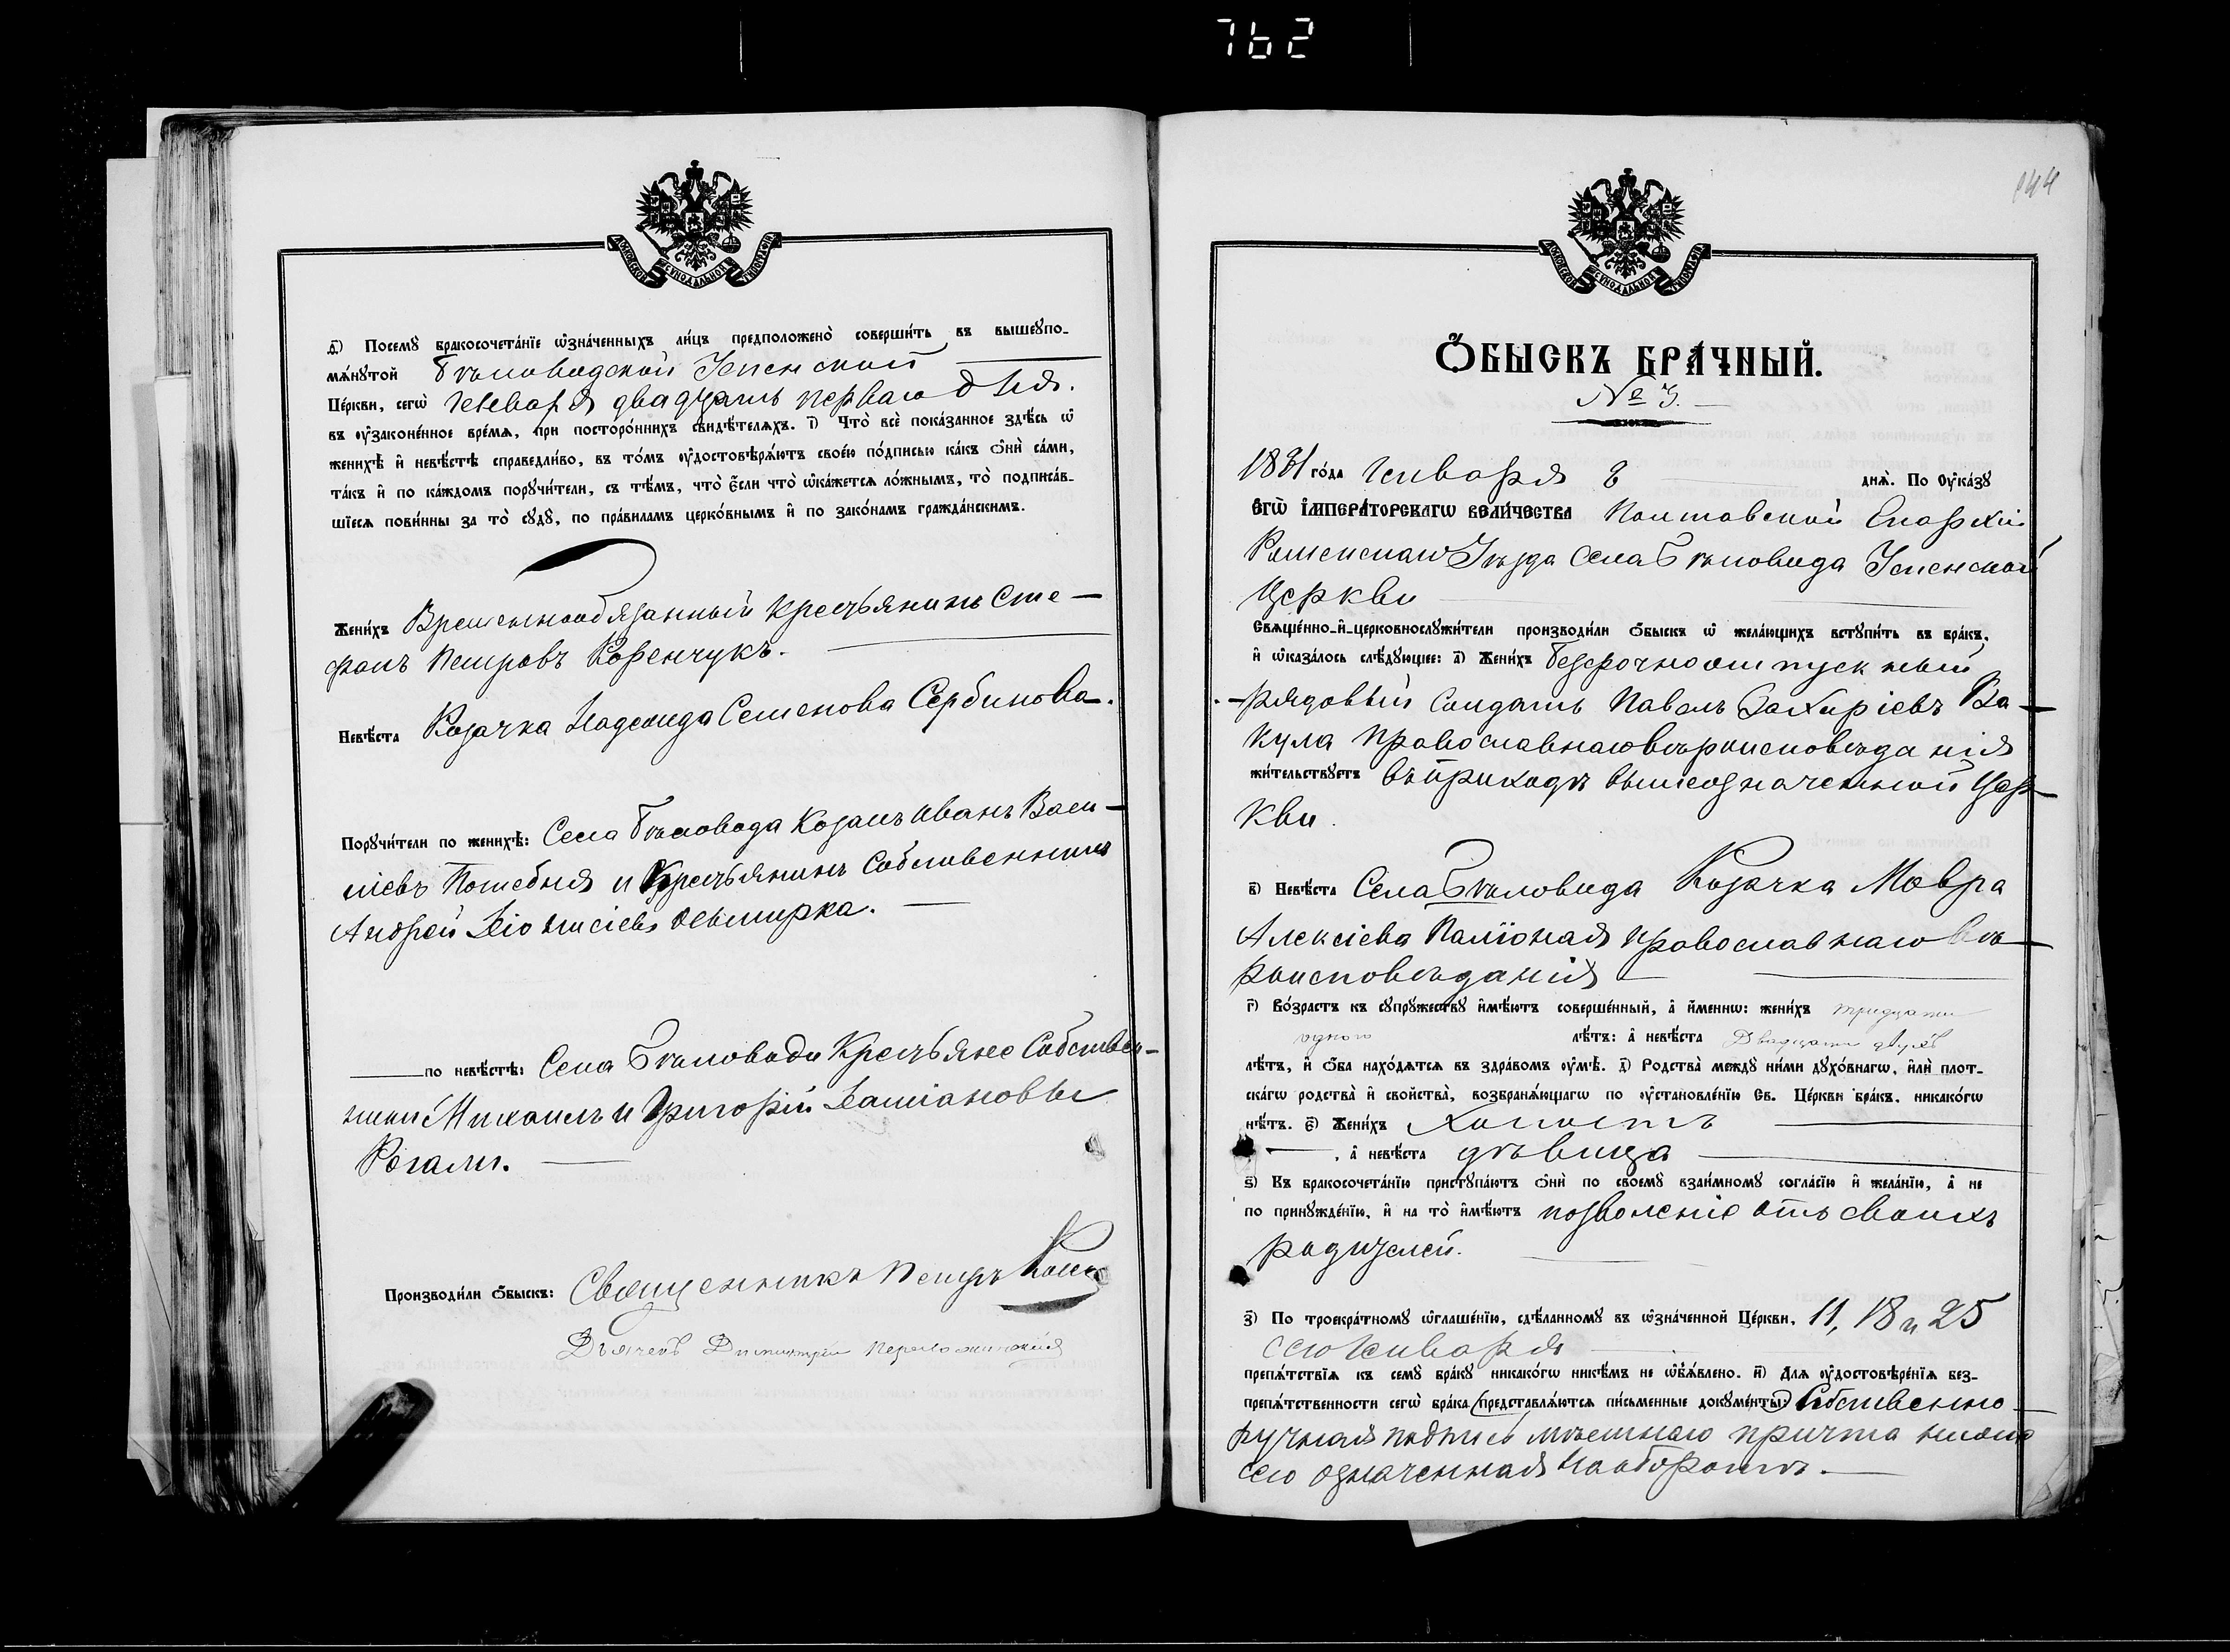 762
МОСКОВСКОЙ СѴНОДАЛЬНОЙ ТИПОГРАФІИ
ѳ҃) Посемꙋ бракосочета́нїе ѡ҆зна́ченныхъ ли́цъ предположено̀ соверши́ть въ вышеꙋпо-
мѧ́нꙋтой Бѣловодской Успенской
Це́ркви, сегѡ̀ Генваря двадцать перваго дня.
въ ᲂу҆законе́нное вре́мѧ, при посторо́ннихъ свидѣ́телѧхъ. і҃) Что̀ всѐ пока́занное здѣ́сь ѡ҆
женихѣ̀ и҆ невѣ́стѣ справедли́во, въ то́мъ ᲂу҆достовѣрѧ́ютъ свое́ю по́дписью ка́къ ѻ҆нѝ са́ми,
та́къ и҆ по ка́ждомъ порꙋчи́тели, съ тѣ́мъ, что̀ є҆́сли что̀ ѡ҆ка́жетсѧ ло́жнымъ, то̀ подписа́в-
шїесѧ пови́нны за то̀ сꙋдꙋ̀, по пра́виламъ церко́внымъ и҆ по зако́намъ гражда́нскимъ.
Жени́хъ Временнообязанный крестьянинъ Сте-
фанъ Петровъ Коренчукъ.
Невѣ́ста Козачка Надежда Семенова Сербинова.
Порꙋчи́тели по женихѣ̀: Села Бѣловода Козакъ Иванъ Васи-
лиевъ Потебня и Крестьянинъ Собственникъ
Андрей Діонисіевъ
по невѣ́стѣ: Села Бѣловоди Крестьяне Собствен-
ники Михаилъ и Григорій Даміановы
Рогали.
Производи́ли ѻ҆́быскъ: Священникъ Петръ
Дьячекъ Димитрій
144
МОСКОВСКОЙ СѴНОДАЛЬНОЙ ТИПОГРАФІИ
Ѻ҆́БЫСКЪ БРА́ЧНЫЙ.
№ 3.
1881 го́да Генваря 8 днѧ̀. По ᲂу҆ка́зꙋ
Є҆ГѠ̀ І҆МПЕРА́ТОРСКАГѠ ВЕЛИ́ЧЕСТВА Полтавской Епархіи
Роменскаго Уѣзда Села Бѣловода Успенской
Церкви
Свѧще́нно-и҆-церковнослꙋжи́тели производи́ли ѻ҆́быскъ ѡ҆ жела́ющихъ встꙋпи́ть въ бра́къ,
и҆ ѡ҆каза́лось слѣ́дꙋющее: а҃) Жени́хъ безсрочноотпускный
рядовый Солдатъ Павелъ Захаріевъ Ва-
кула православнаго вѣроисповѣданія
жи́тельствꙋетъ въ приходѣ вышеозначенной Цер-
кви.
в҃) Невѣ́ста Села Бѣловода Козачка Мавра
Алексіева православнаго вѣ-
роисповѣданія
г҃) Во́зрастъ къ сꙋпрꙋ́жествꙋ и҆мѣ́ютъ соверше́нный, а҆ и҆́меннѡ: жени́хъ тридцати
одного лѣ́тъ: а҆ невѣ́ста Двадцати двухъ
лѣ́тъ, и҆ ѻ҆́ба нахо́дѧтсѧ въ здра́вомъ ᲂу҆мѣ̀. д҃) Родства̀ междꙋ ни́ми дꙋхо́внагѡ, и҆лѝ плот-
ска́гѡ родства̀ и҆ свойства̀, возбранѧ́ющагѡ по ᲂу҆становле́нїю Св. Це́ркви бра́къ, никако́гѡ
нѣ́тъ. є҃) Жени́хъ Холостъ
, а҆ невѣ́ста дѣвица
ѕ҃) Къ бракосочета́нїю пристꙋпа́ютъ ѻ҆нѝ по своемꙋ̀ взаи́мномꙋ согла́сїю и҆ жела́нїю, а҆ не
по принꙋжде́нїю, и҆ на то̀ и҆мѣ́ютъ позволеніе отъ своихъ
родителей.
з҃) По троекра́тномꙋ ѡ҆глаше́нїю, сдѣ́ланномꙋ въ ѡ҆зна́ченной Це́ркви, 11, 18 и 25
сего Генваря
препѧ́тствїѧ къ семꙋ̀ бра́кꙋ никако́гѡ никѣ́мъ не ѡ҆б̾ѧ́влено. и҃) Длѧ ᲂу҆достовѣре́нїѧ без-
препѧ́тственности сегѡ̀ бра́ка (представлѧ́ютсѧ пи́сьменные докꙋме́нты:) Собственно-
ручная подпись мѣстнаго причта ниже
сего означенная на оборотѣ.